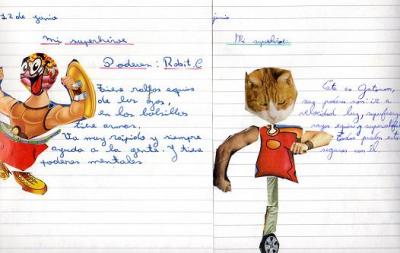 12 de junio
Mi superhéroe
Poderes: Robit.C
Tiene rallos equis
de los ojos,
en los bolsillos
tiene armas.
Va muy rápido y siempre
ayuda a la gente. Y tiene
poderes mentales
junio
Mi superhéroe
Este es Gatoman,
sus poderes son: ir a
velocidad luz, superfuerza
rayos equis y
Todos
seguros con él.